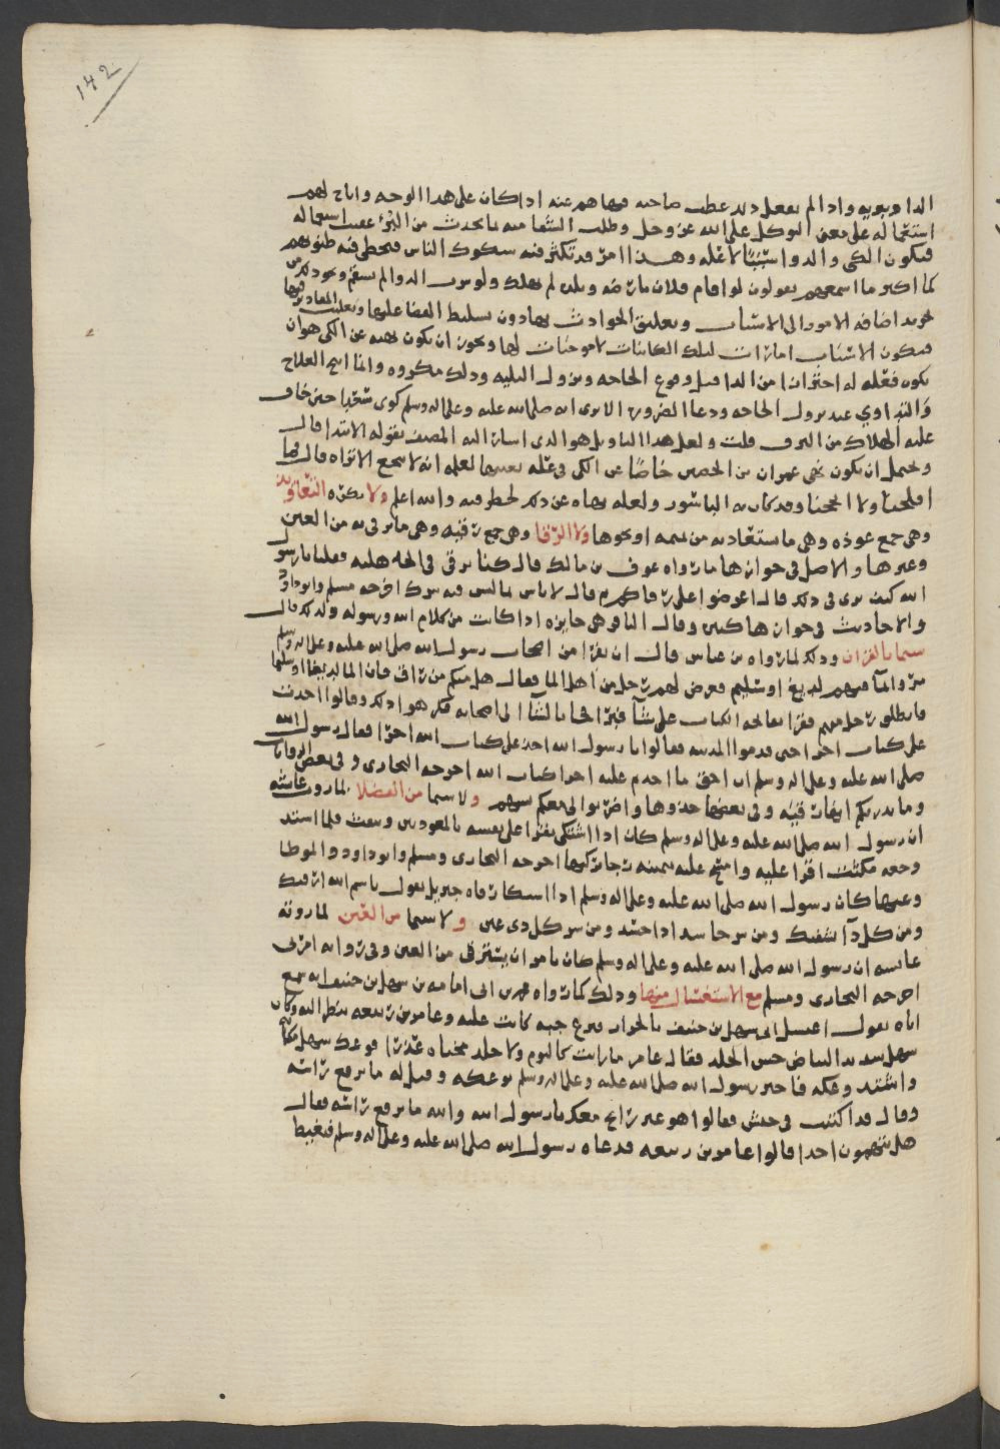 ١٤٢
الدا ويبريه واذا لم يفعل ذلك عطب صاحبه فنهاهم عنه اذا كان على هذا الوجه واباح لهم
استعماله على معنى التوكل على الله عز وجل وطلب الشفا منه بما يحدث من البرؤ عقيب استعماله
فيكون الكي والدوا سَبَبًا لا علة وهذا امر قد تكثر فيه شكوك الناس فتخطي فيه ظنونهم
كما اكثر ما اسمعهم يقولون لو اقام فلان بارضه وبلده لم يهلك ولو شرب الدوا لم يسقم ونحو ذلك من
تجريد اضافة الامور الى الاسباب وتعليق الحوادث بها دون تسليط القضا عليها وتغليب المقادير فيها
فتكون الاسباب امارات لتلك الكاينات لا موجبات لها ويجوز ان يكون نهيه عن الكي هو ان
يكون فعله له احترازا من الدا قبل وقوع الحاجة ونزول البلية وذلك مكروه وانما ابيح العلاج
والتداوي عند نزول الحاجة ودعا الضرورة الا ترى انه صلى الله عليه وعلى اله وسلم كوى سعدا حين خاف
عليه الهلاك من النزف قلت ولعل هذا التاويل هو الذي اشار اليه المصنف بقوله الابتدا قال
ويحتمل ان يكون نهي عمران بن الحصين خاصًا عن الكي في علة بعينها لعلمه انه لا ينجع الا تراه قال فما
افلحنا ولا انجحنا وقد كان به الباسور ولعله نهاه عن ذلك لخطر فيه والله اعلم ولا تكره التعاويذ
وهي جمع عوذه وهي ما ستعاذ به من تميمة او نحوها ولا الرقا وهي جمع رقيه وهي ما يرقى به من العين
وغيرها والاصل في جوازها ما رواه عوف بن مالك قال كنا نرقي في الجاهليه فقلنا يا رسول
الله كيف ترى في ذلك قال اعرضوا علي رقاكم ثم قال لا باس بما ليس فيه شرك اخرجه مسلم وابو داود
والاحاديث في جوازها كثيره وقال النافر هي جايزه اذا كانت من كلام الله ورسوله ولذلك قال
سيما بالقران وذلك لما رواه بن عباس قال ان نفرا من اصحاب رسول الله صلى الله عليه وعلى اله وسلم
مر والمآ فيهم لديغ او سليم فعرض لهم رجل من اهل المآ فقال هل منكم من راق فان في المآ لديغا او سليما
فانطلق رجل منهم فقرا بفاتحة الكتاب على شآ فبرا فجا بالشآ الى اصحابه فكرهوا ذلك وقالوا اخذت
على كتاب اجرا حتى قدموا المدينه فقالوا يا رسول الله اخذ على كتاب الله اجرا فقال رسول الله
صلى الله عليه وعلى اله وسلم ان احق ما اخذتم عليه اجرا كتاب الله اخرجه البخاري وفي بعض الروايات
وما يدريكم انها رقيه وفي بعضها خذوها واضربوا لي معكم بسهم ولا سيما من الفضلا لما روت عايشه
ان رسول الله صلى الله عليه وعلى اله وسلم كان اذا اشتكى يقرا على نفسه بالمعوذتين وينفث فلما اشتد
وجعه كنت اقرا عليه وامسح عليه بيمينه رجا بركتها اخرجه البخاري ومسلم وابو داود والموطا
وعنها كان رسول الله صلى الله عليه وعلى اله وسلم اذا اشتكا رقاه جبريل يقول باسم الله ارقيك
ومن كل دآ يشفيك ومن شر حاسد اذا حسد ومن شر كل ذي عين ولا سيما من العين لما روته
عايشه ان رسول الله صلى الله عليه وعلى اله وسلم كان يامر ان يسترقى من العين وفي رواية امرني
اخرجه البخاري ومسلم مع الاستغسال منها وذلك كما رواه محمد بن ابي امامه بن سهل بن حنيف انه سمع
اباه يقول اغتسل ابي سهل بن حنيف بالخرار فنزع جبه كانت عليه وعامر بن ربيعه ينظر اليه وكان
سهل شديد البياض حسن الجلد فقال عامر ما رايت كاليوم ولا جلد مخباه عذرا فوعك سهل مكانه
واشتد وعكه فاخبر رسول الله صلى الله عليه وعلى اله وسلم بوعكه وقيل له ما يرفع راسه
وقال قد اكتتب في جيش فقالوا هو غير رايح معك يا رسول الله والله ما يرفع راسه فقال
هل تتهمون احدا قالوا عامر بن ربيعه فدعاه رسول الله صلى الله عليه وعلى اله وسلم فتغيظ